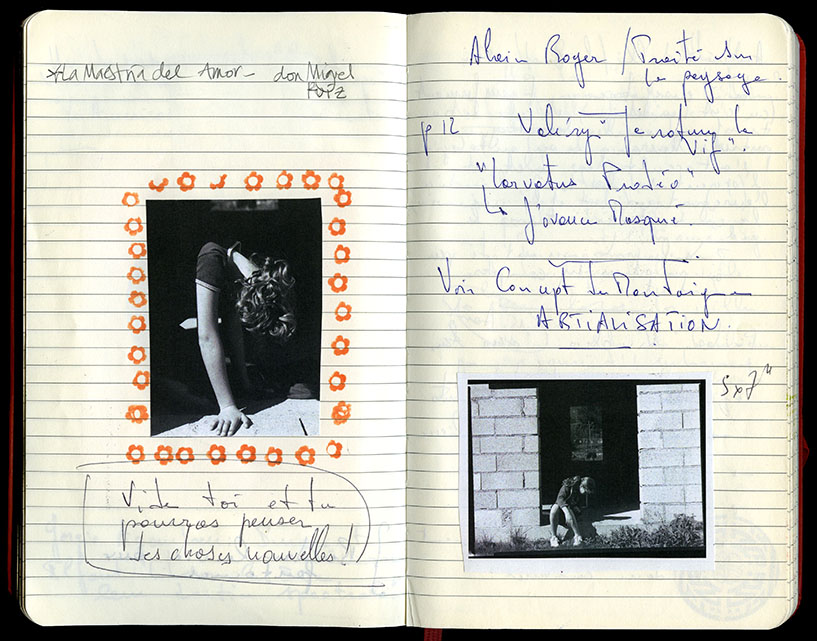 *La Maestria del Amor - don Miguel
Ruiz
Vide toi et tu
pourras penser
des choses nouvelles!
Alain Roger / Traité sur
le paysage.
p 12 Valéry "je rature le
Vif".
"Larvatus Prodéo"
↳ J'avance Masqué.
Voir Concept de Montaigne
ARTIALISATION.
5x7"